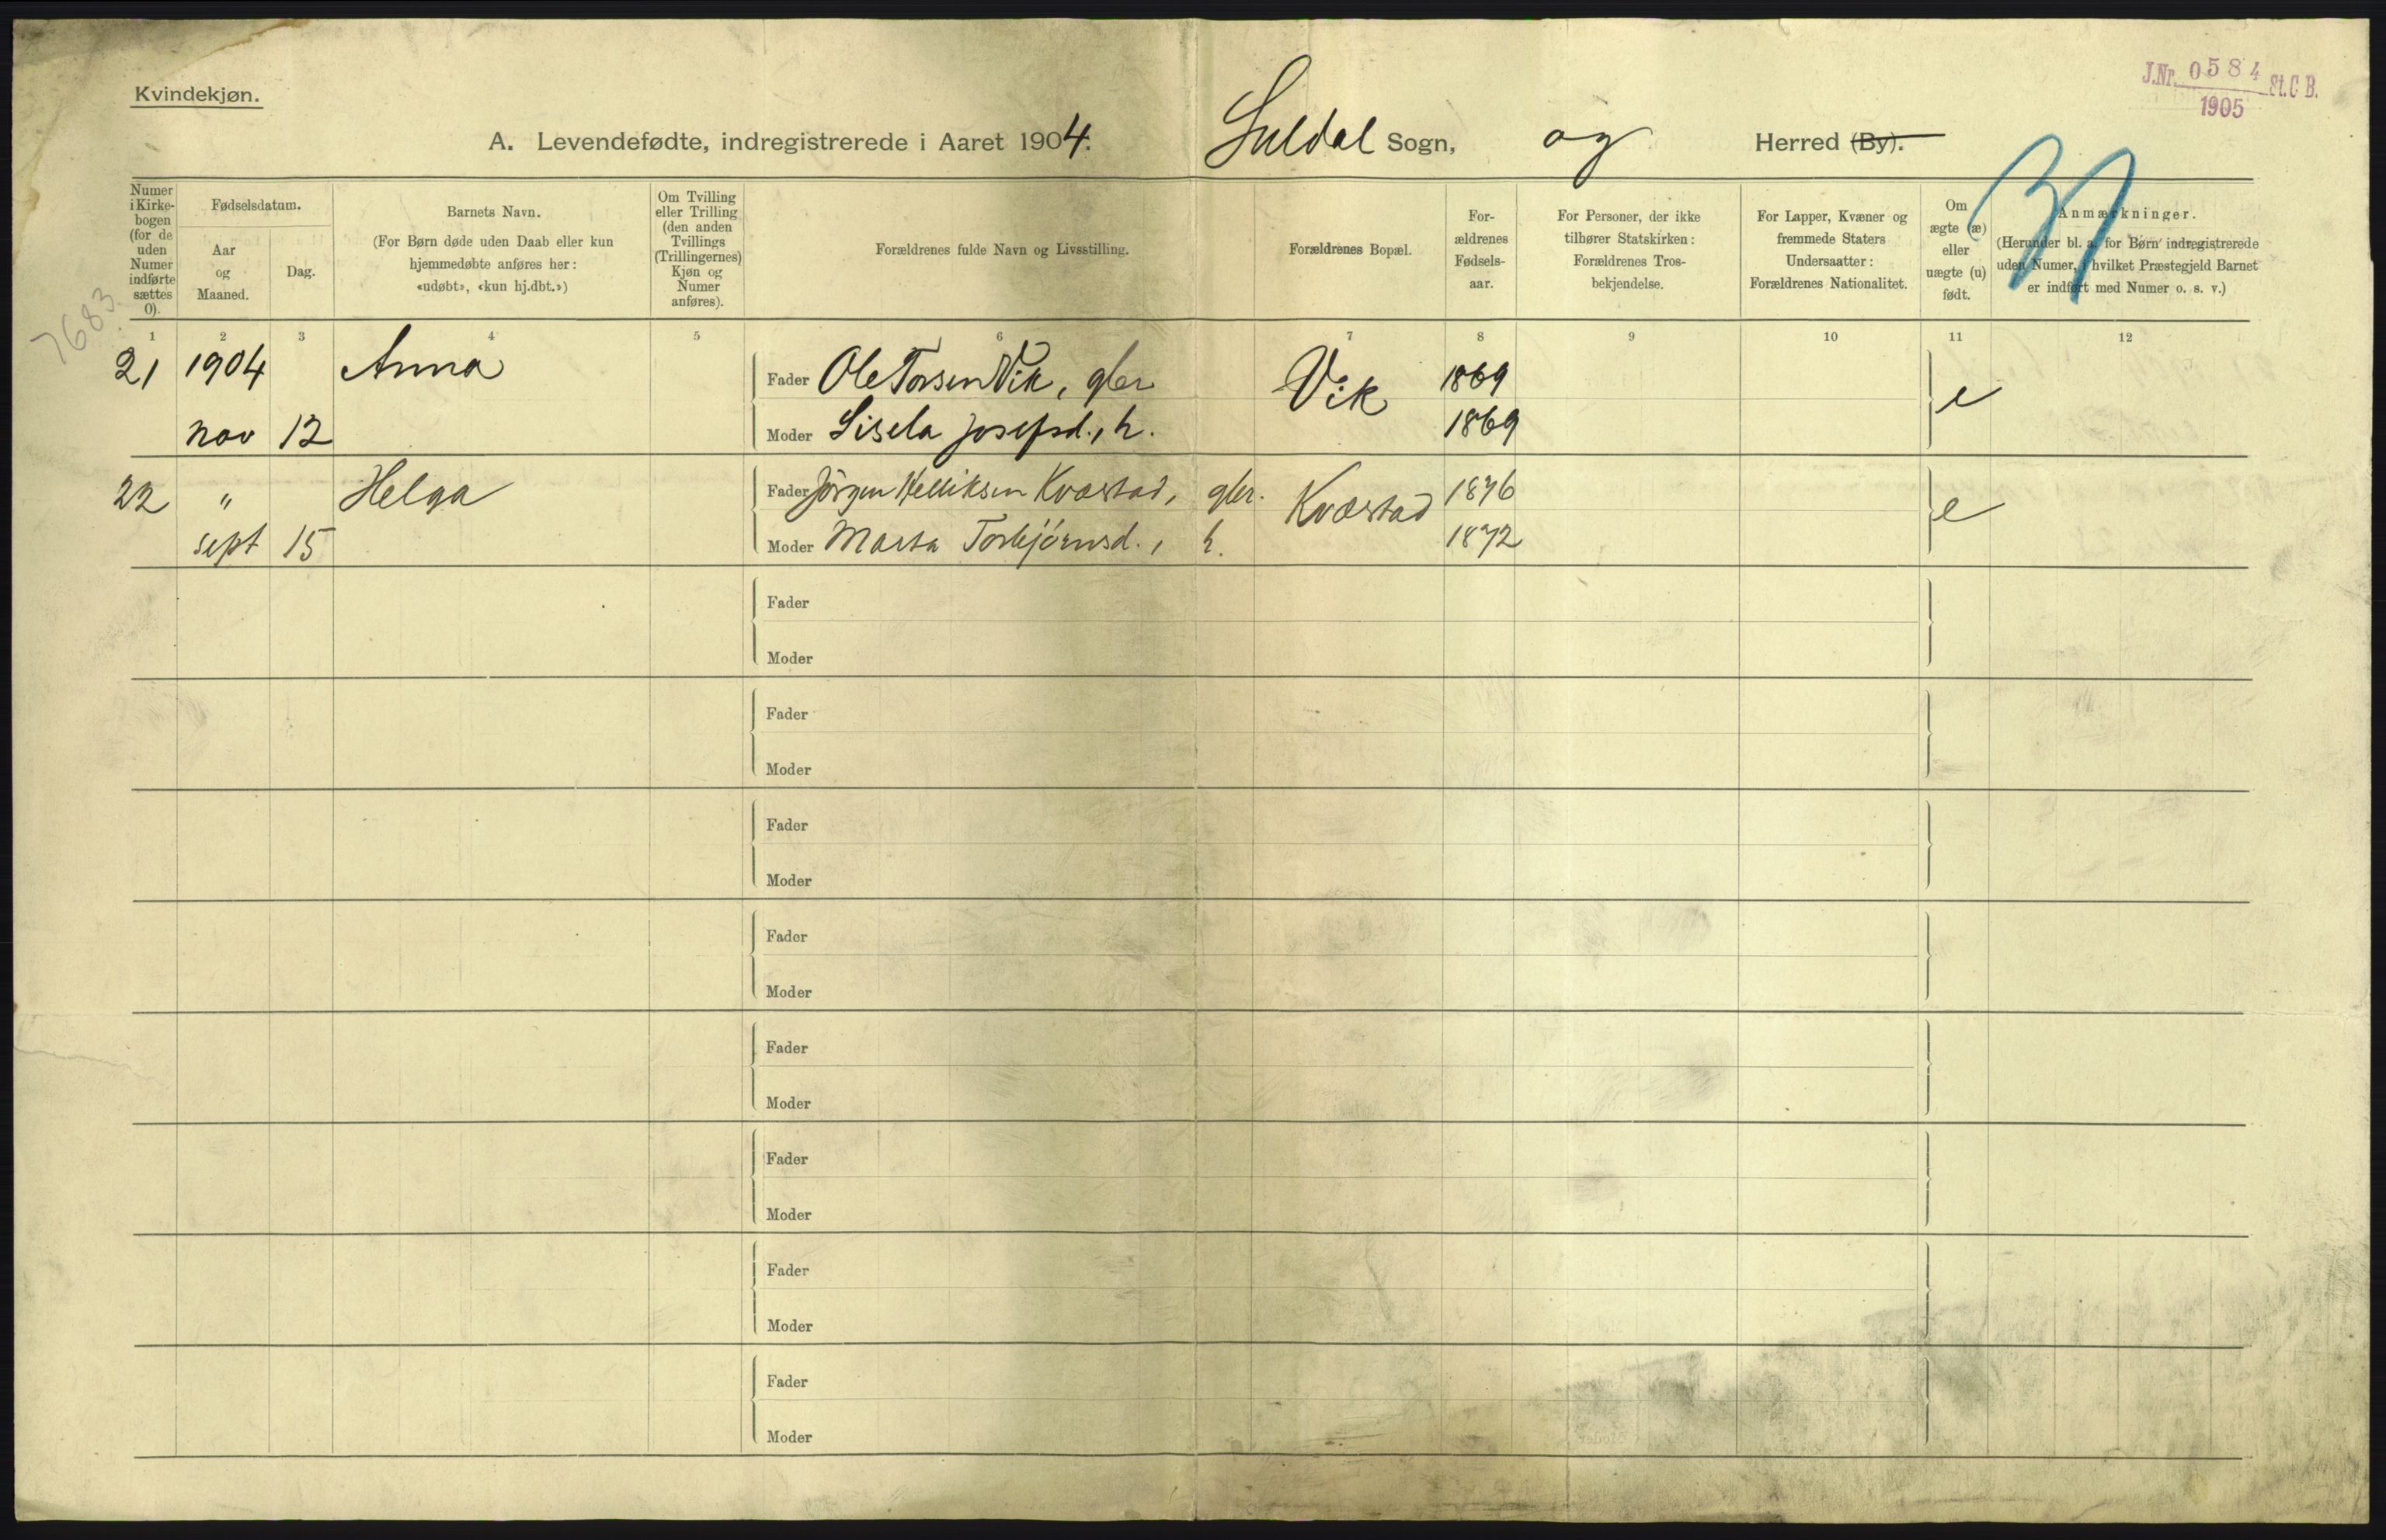 Kvindekjøn.
J.Nr. 0584 St.C B.
1905
A. Levendefødte, indregistrerede i Aaret 1904. Suldal Sogn, og Herred (By).
Numer i Kirkebogen (for de uden Numer indførte sættes 0).
Fødselsdatum.
Aar og Maaned.
Dag.
Barnets Navn.
(For Børn døde uden Daab eller kun
hjemmedøbte anføres her:
«udøbt», «kun hj.dbt.»)
Om Tvilling
eller Trilling
(den anden
Tvillings
(Trillingernes)
Kjøn og
Numer
anføres).
Forældrenes fulde Navn og Livsstilling.
Forældrenes Bopæl.
For-
ældrenes
Fødsels-
aar.
For Personer, der ikke
tilhører Statskirken:
Forældrenes Tros-
bekjendelse.
For Lapper, Kvæner og
fremmede Staters
Undersaatter:
Forældrenes Nationalitet.
Om
ægte (æ)
eller
uægte (u)
født.
Anmærkninger.
(Herunder bl. a. for Børn indregistrerede
uden Numer, i hvilket Præstegjeld Barnet
er indført med Numer o. s. v.)
7683
1 2 3 4 5 6 7 8 9 10 11 12
21 1904 Anna Fader Ole Torsen Vik, gbr Vik 1869 e
nov 12 Moder Sisela Josefsd., h. 1869
22 " Helga Fader Jörgen Helliksen Kvæstad, gbr. Kvæstad 1876 e
sept 15 Moder Marta Torbjörnsd., h. 1872
Fader
Moder
Fader
Moder
Fader
Moder
Fader
Moder
Fader
Moder
Fader
Moder
Fader
Moder
Fader
Moder